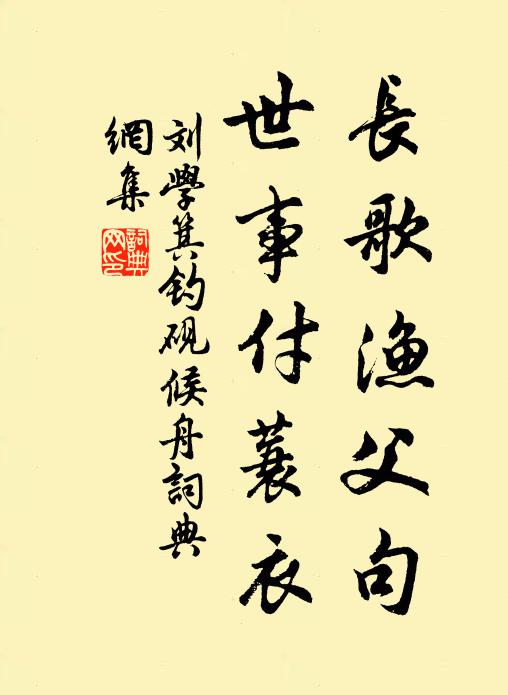 長歌漁父句
世事付蓑衣
刘學箕釣硯候舟詞典
網集
詞典
网印